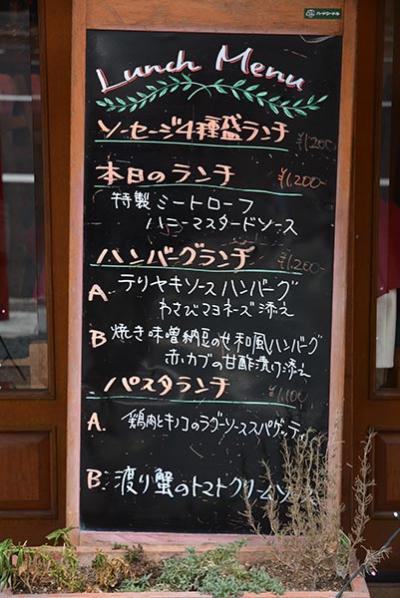 Lunch Menu
ソーセージ4種盛ランチ ¥1,200
本日のランチ ¥1,200-
特製ミートローフ
ハニーマスタードソース
ハンバーグランチ ¥1,200-
A テリヤキソースハンバーグ
わさびマヨネーズ添え
B 焼き味噌納豆のせ和風ハンバーグ
赤カブの甘酢漬け添え
パスタランチ ¥1,100
A. 鶏肉とキノコのラグーソーススパゲッティ
B. 渡り蟹のトマトクリームソース